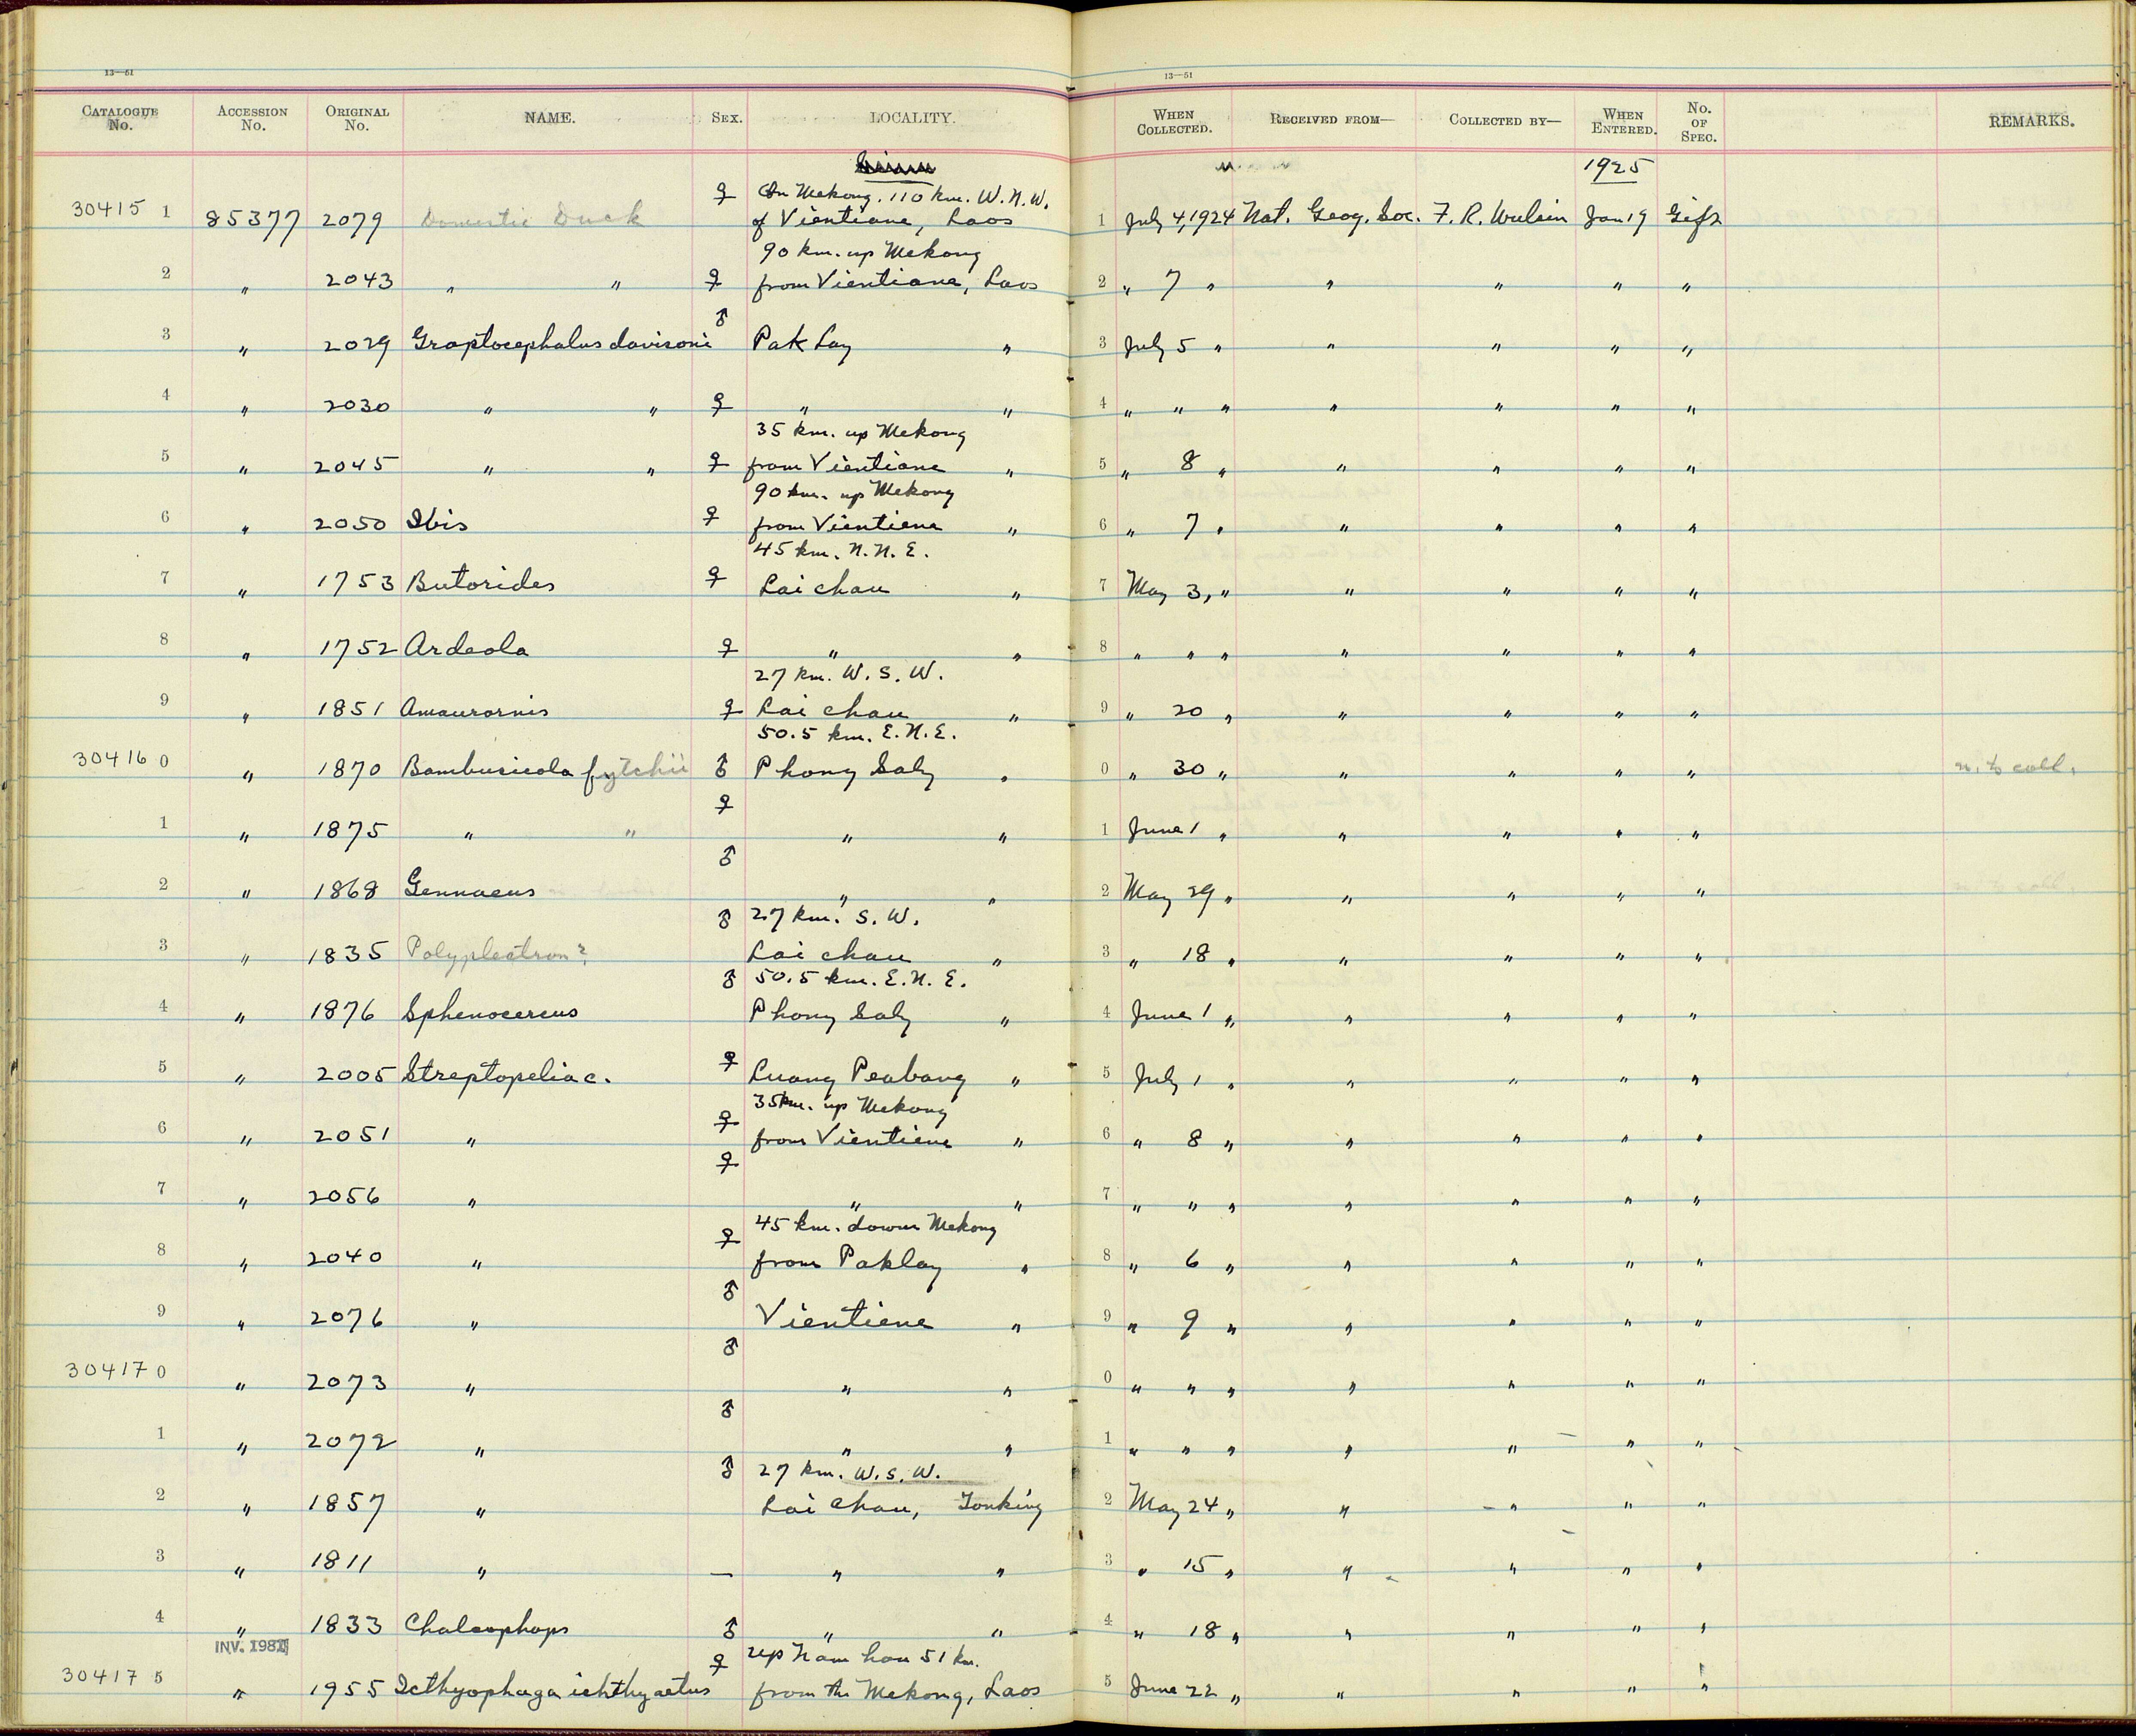 13—51 13—51
CATALOGUE No. ACCESSION No. ORIGINAL No. NAME. SEX. LOCALITY. WHEN COLLECTED. RECEIVED FROM— COLLECTED BY— WHEN ENTERED. No. OF SPEC. REMARKS.
1925
♀ On Mekong. 110 km. W.N.W.
30415 1 85377 2079 Domestic Duck of Vientiane, Laos 1 July 4, 1924 Nat. Geog. Soc. F. R. Wulsin Jan 19 Gift
90 km. up Mekong
2 " 2043 " " ♀ from Vientiane, Laos 2 " 7 " " " " "
♂
3 " 2029 Graptocephalus davisoni Pak Lay " 3 July 5 " " " " "
4 " 2030 " " ♀ " " 4 " " " " " " "
35 km. up Mekong
5 " 2045 " " ♀ from Vientiane " 5 " 8 " " " " "
90 km. up Mekong
6 " 2050 Ibis ♀ from Vientiene " 6 " 7 " " " " "
45 km. N.N.E.
7 " 1753 Butorides ♀ Lai chau " 7 May 3, " " " " "
8 " 1752 Ardeola ♀ " " 8 " " " " " " "
27 km. W. S. W.
9 " 1851 Amaurornis ♀ Lai chau " 9 " 20 " " " " "
50.5 km. E.N.E.
30416 0 " 1870 Bambusicola fytchii ♂ Phong Saly " 0 " 30 " " " " " n. to coll.
♀
1 " 1875 " " " " 1 June 1 " " " " "
♂
2 " 1868 Gennaeus " " 2 May 29 " " " " "
♂ 27 km. S. W.
3 " 1835 Polyplectron? Lai chau " 3 " 18 " " " " "
♂ 50.5 km. E.N.E.
4 " 1876 Sphenocercus Phong Saly " 4 June 1 " " " " "
5 " 2005 Streptopelia c. ♀ Luang Peabang " 5 July 1 " " " " "
35 km. up Mekong
6 " 2051 " ♀ from Vientiene " 6 " 8 " " " " "
♀
7 " 2056 " " " 7 " " " " " " "
45 km. down Mekong
8 " 2040 " ♀ from Paklay " 8 " 6 " " " " "
♂
9 " 2076 " Vientiene " 9 " 9 " " " " "
♂
30417 0 " 2073 " " " 0 " " " " " " "
♂
1 " 2072 " " " 1 " " " " " " "
♂ 27 km. W.S.W.
2 " 1857 " Lai Chau, Tonking 2 May 24 " " " " "
3 " 1811 " — " " 3 " 15 " " " " "
4 " 1833 Chalcophaps ♂ " " 4 " 18 " " " " "
♀ up Nam hou 51 km.
30417 5 " 1955 Icthyophaga ichthyaetus from the Mekong, Laos 5 June 22 " " " " "